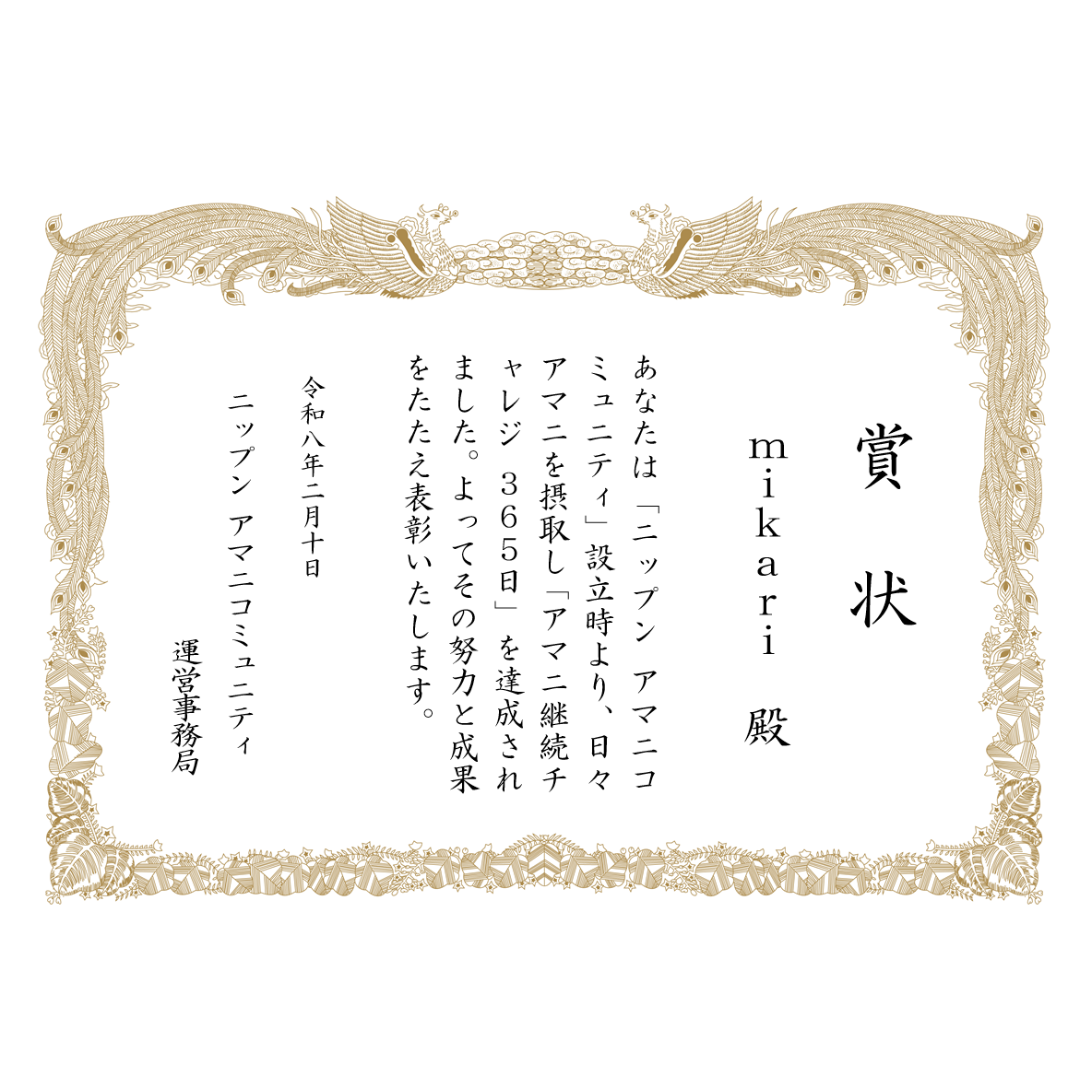 賞状
mikari 殿
あなたは「ニップン アマニコ
ミュニティ」設立時より、日々
アマニを摂取し「アマニ継続チ
ャレジ 365日」を達成され
ました。よってその努力と成果
をたたえ表彰いたします。
令和八年二月十日
ニップン アマニコミュニティ
運営事務局